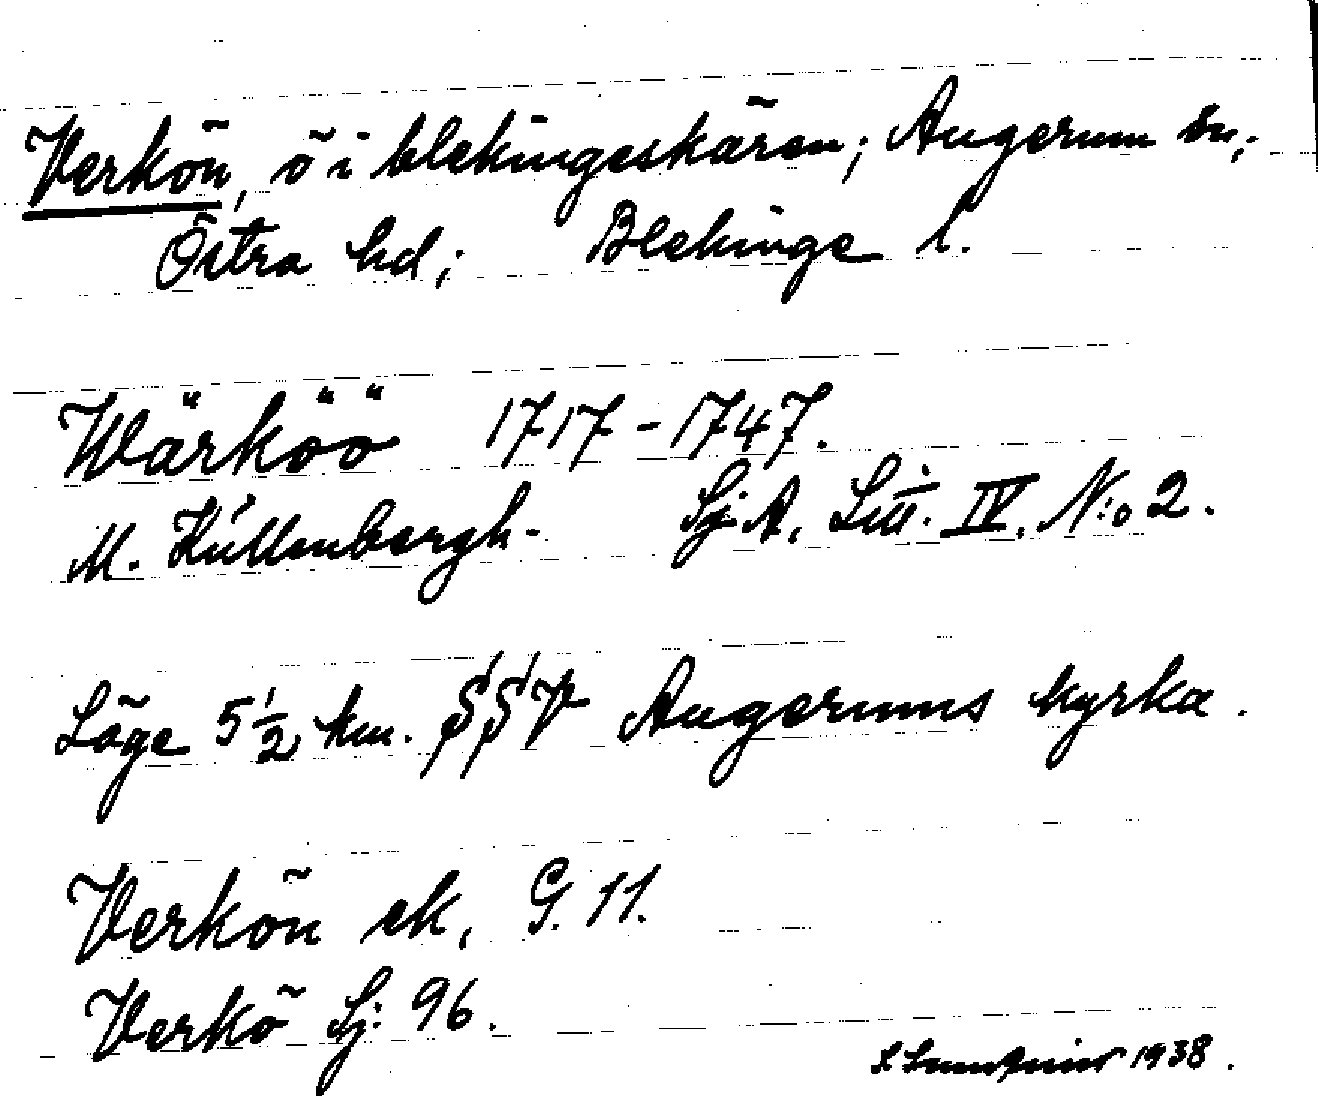 Verkön, ö i blekingeskären; Augerum sn;
Östra hd; Blekinge l.
Wärköö 1717-1747.
M. Küllenbergh. Sj. A, Litt. IV, N:o 2.
Läge 5 1/2 km. SSV Augerums kyrka.
Verkön ek, G. 11.
Verkö Sj: 96.
1938.